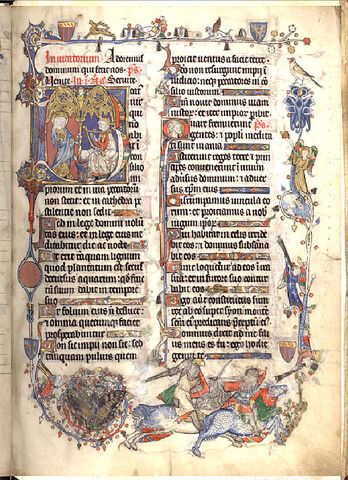 Invitatorium. Adoremus
dominum qui fecit nos. ps
Venite.
piorum et in via peccatorum
non stetit: et in cathedra pe
stilentie non sedit
Sed in lege domini volun
tas eius: et in lege eius me
ditabitur die ac nocte
Et erit tanquam lignum
quod plantatum est secus
decursus aquarum: quod fruc
tum suum dabit in tempore
suo
Et folium eius non defluet:
et omnia quecumque faciet
prosperabuntur
Non sic impii non sic: sed
tanquam pulvis quem
proicit ventus a facie terre.
Ideo non resurgunt impii in
iudicio: neque peccatores in con
silio iustorum
Quoniam novit dominus viam
iustorum: et iter impiorum peribit
Quare fremuerunt
gentes: et populi medita
ti sunt inania
Astiterunt reges terre et prin
cipes convenerunt in unum
adversus dominum: et adver
sus christum eius
Dirumpamus vincula eo
rum: et proiciamus a nob
iugum ipsorum
Qui habitat in celis irride
bit eos: et dominus subsanna
bit eos
Tunc loquetur ad eos in ira
sua: et in furore suo contur
babit eos
Ego autem constitutus sum
rex ab eo super syon montem
sanctum eius predicans preceptum eius
Dominus dixit ad me fili
us meus es tu: ego hodie
genui te